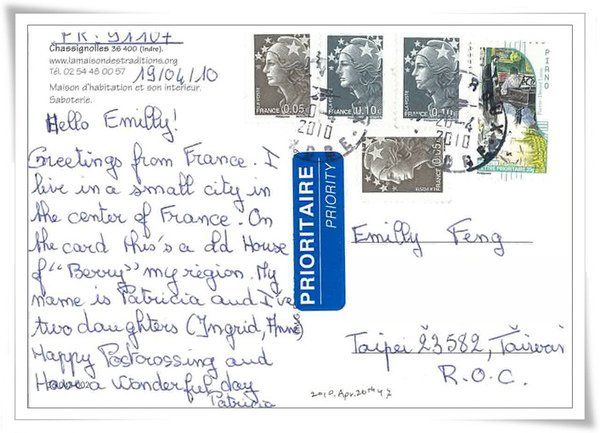 FR-91107
Chassignolles 36 400 (Indre).
www.lamaisondestraditions.org
Tél. 02 54 48 00 57
19/04/10
Maison d'habitation et son intérieur.
Saboterie.
Hello Emilly!
Greetings from France. I
live in a small city in
the center of France. On
the card this's a old House
of "Berry" my region. My
name is Patricia and I've
two daughters (Ingrid, Anne)
Happy Postcrossing and
Have a wonderful day
Patricia
FRANCE 0,05€
FRANCE 0,10€
FRANCE 0,10€
FRANCE
PIANO
LETTRE PRIORITAIRE 20g
2010
2010
PRIORITAIRE
PRIORITY
Emilly Feng
Taipei 23582, Taiwan
R.O.C.
2010.Apr.26th